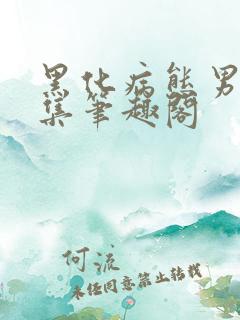 黑化病态男
集笔趣阁
何流
未经同意禁止转载